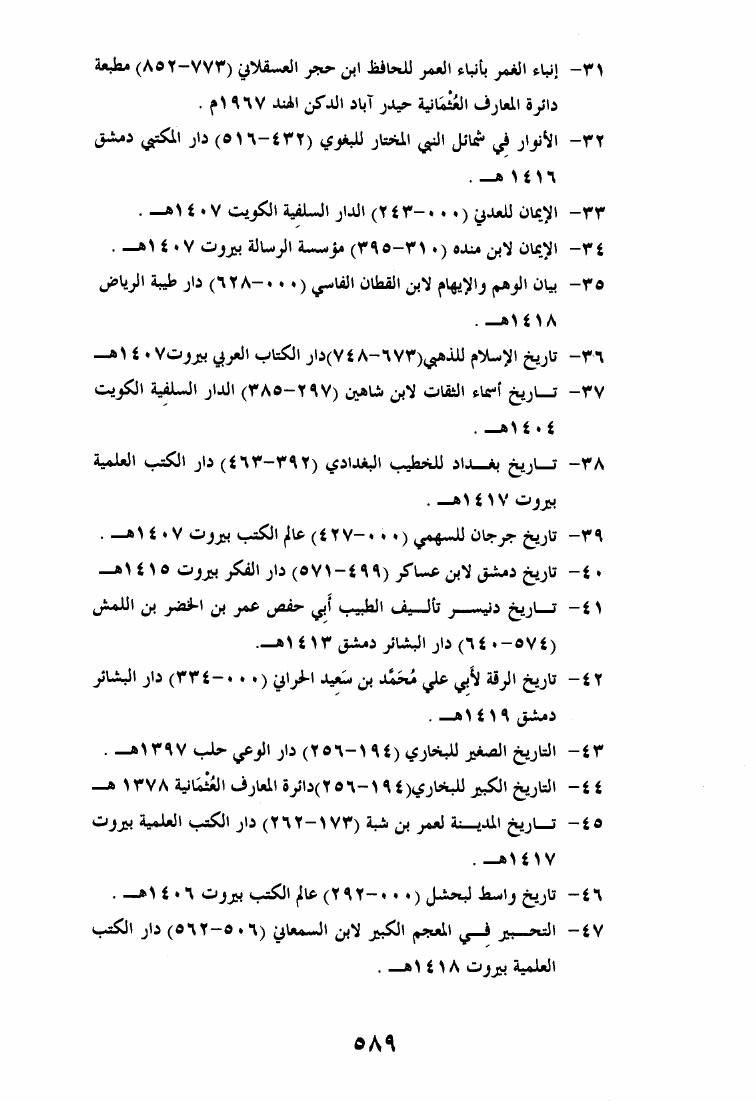 ٣١- إنباء الغمر بأنباء العمر للحافظ ابن حجر العسقلاني (٧٧٣-٨٥٢) مطبعة
دائرة المعارف العُثْمَانية حيدر آباد الدكن الهند ١٩٦٧م .
٣٢- الأنوار في شمائل النبي المختار للبغوي (٤٣٢-٥١٦) دار المكتبي دمشق
١٤١٦ هـ .
٣٣- الإيمان للعدني (٠٠٠-٢٤٣) الدار السلفية الكويت ١٤٠٧هـ .
٣٤- الإيمان لابن منده (٣١٠-٣٩٥) مؤسسة الرسالة بيروت ١٤٠٧هـ .
٣٥- بيان الوهم والإيهام لابن القطان الفاسي (٠٠٠-٦٢٨) دار طيبة الرياض
١٤١٨هـ .
٣٦- تاريخ الإسلام للذهبي(٦٧٣-٧٤٨)دار الكتاب العربي بيروت١٤٠٧هـ
٣٧- تــاريخ أسماء الثقات لابن شاهين (٢٩٧-٣٨٥) الدار السلفية الكويت
١٤٠٤هـ .
٣٨- تــاريخ بغــداد للخطيب البغدادي (٣٩٢-٤٦٣) دار الكتب العلمية
بيروت ١٤١٧هـ .
٣٩- تاريخ جرجان للسهمي (٠٠٠-٤٢٧) عالم الكتب بيروت ١٤٠٧هـ .
٤٠- تاريخ دمشق لابن عساكر (٤٩٩-٥٧١) دار الفكر بيروت ١٤١٥هـ
٤١- تــاريخ دنيســر تأليـف الطبيب أبي حفص عمر بن الخضر بن اللمش
(٥٧٤-٦٤٠) دار البشائر دمشق ١٤١٣هـ.
٤٢- تاريخ الرقة لأبي علي مُحَمَّد بن سَعِيد الحراني (٠٠٠-٣٣٤) دار البشائر
دمشق ١٤١٩هـ .
٤٣- التاريخ الصغير للبخاري (١٩٤-٢٥٦) دار الوعي حلب ١٣٩٧هـ .
٤٤- التاريخ الكبير للبخاري(١٩٤-٢٥٦)دائرة المعارف العُثْمَانية ١٣٧٨ هـ
٤٥- تــاريخ المديــنة لعمر بن شبة (١٧٣-٢٦٢) دار الكتب العلمية بيروت
١٤١٧هـ .
٤٦- تاريخ واسط لبحشل (٠٠٠-٢٩٢) عالم الكتب بيروت ١٤٠٦هـ .
٤٧- التحــبير فــي المعجم الكبير لابن السمعاني (٥٠٦-٥٦٢) دار الكتب
العلمية بيروت ١٤١٨هـ .
٥٨٩